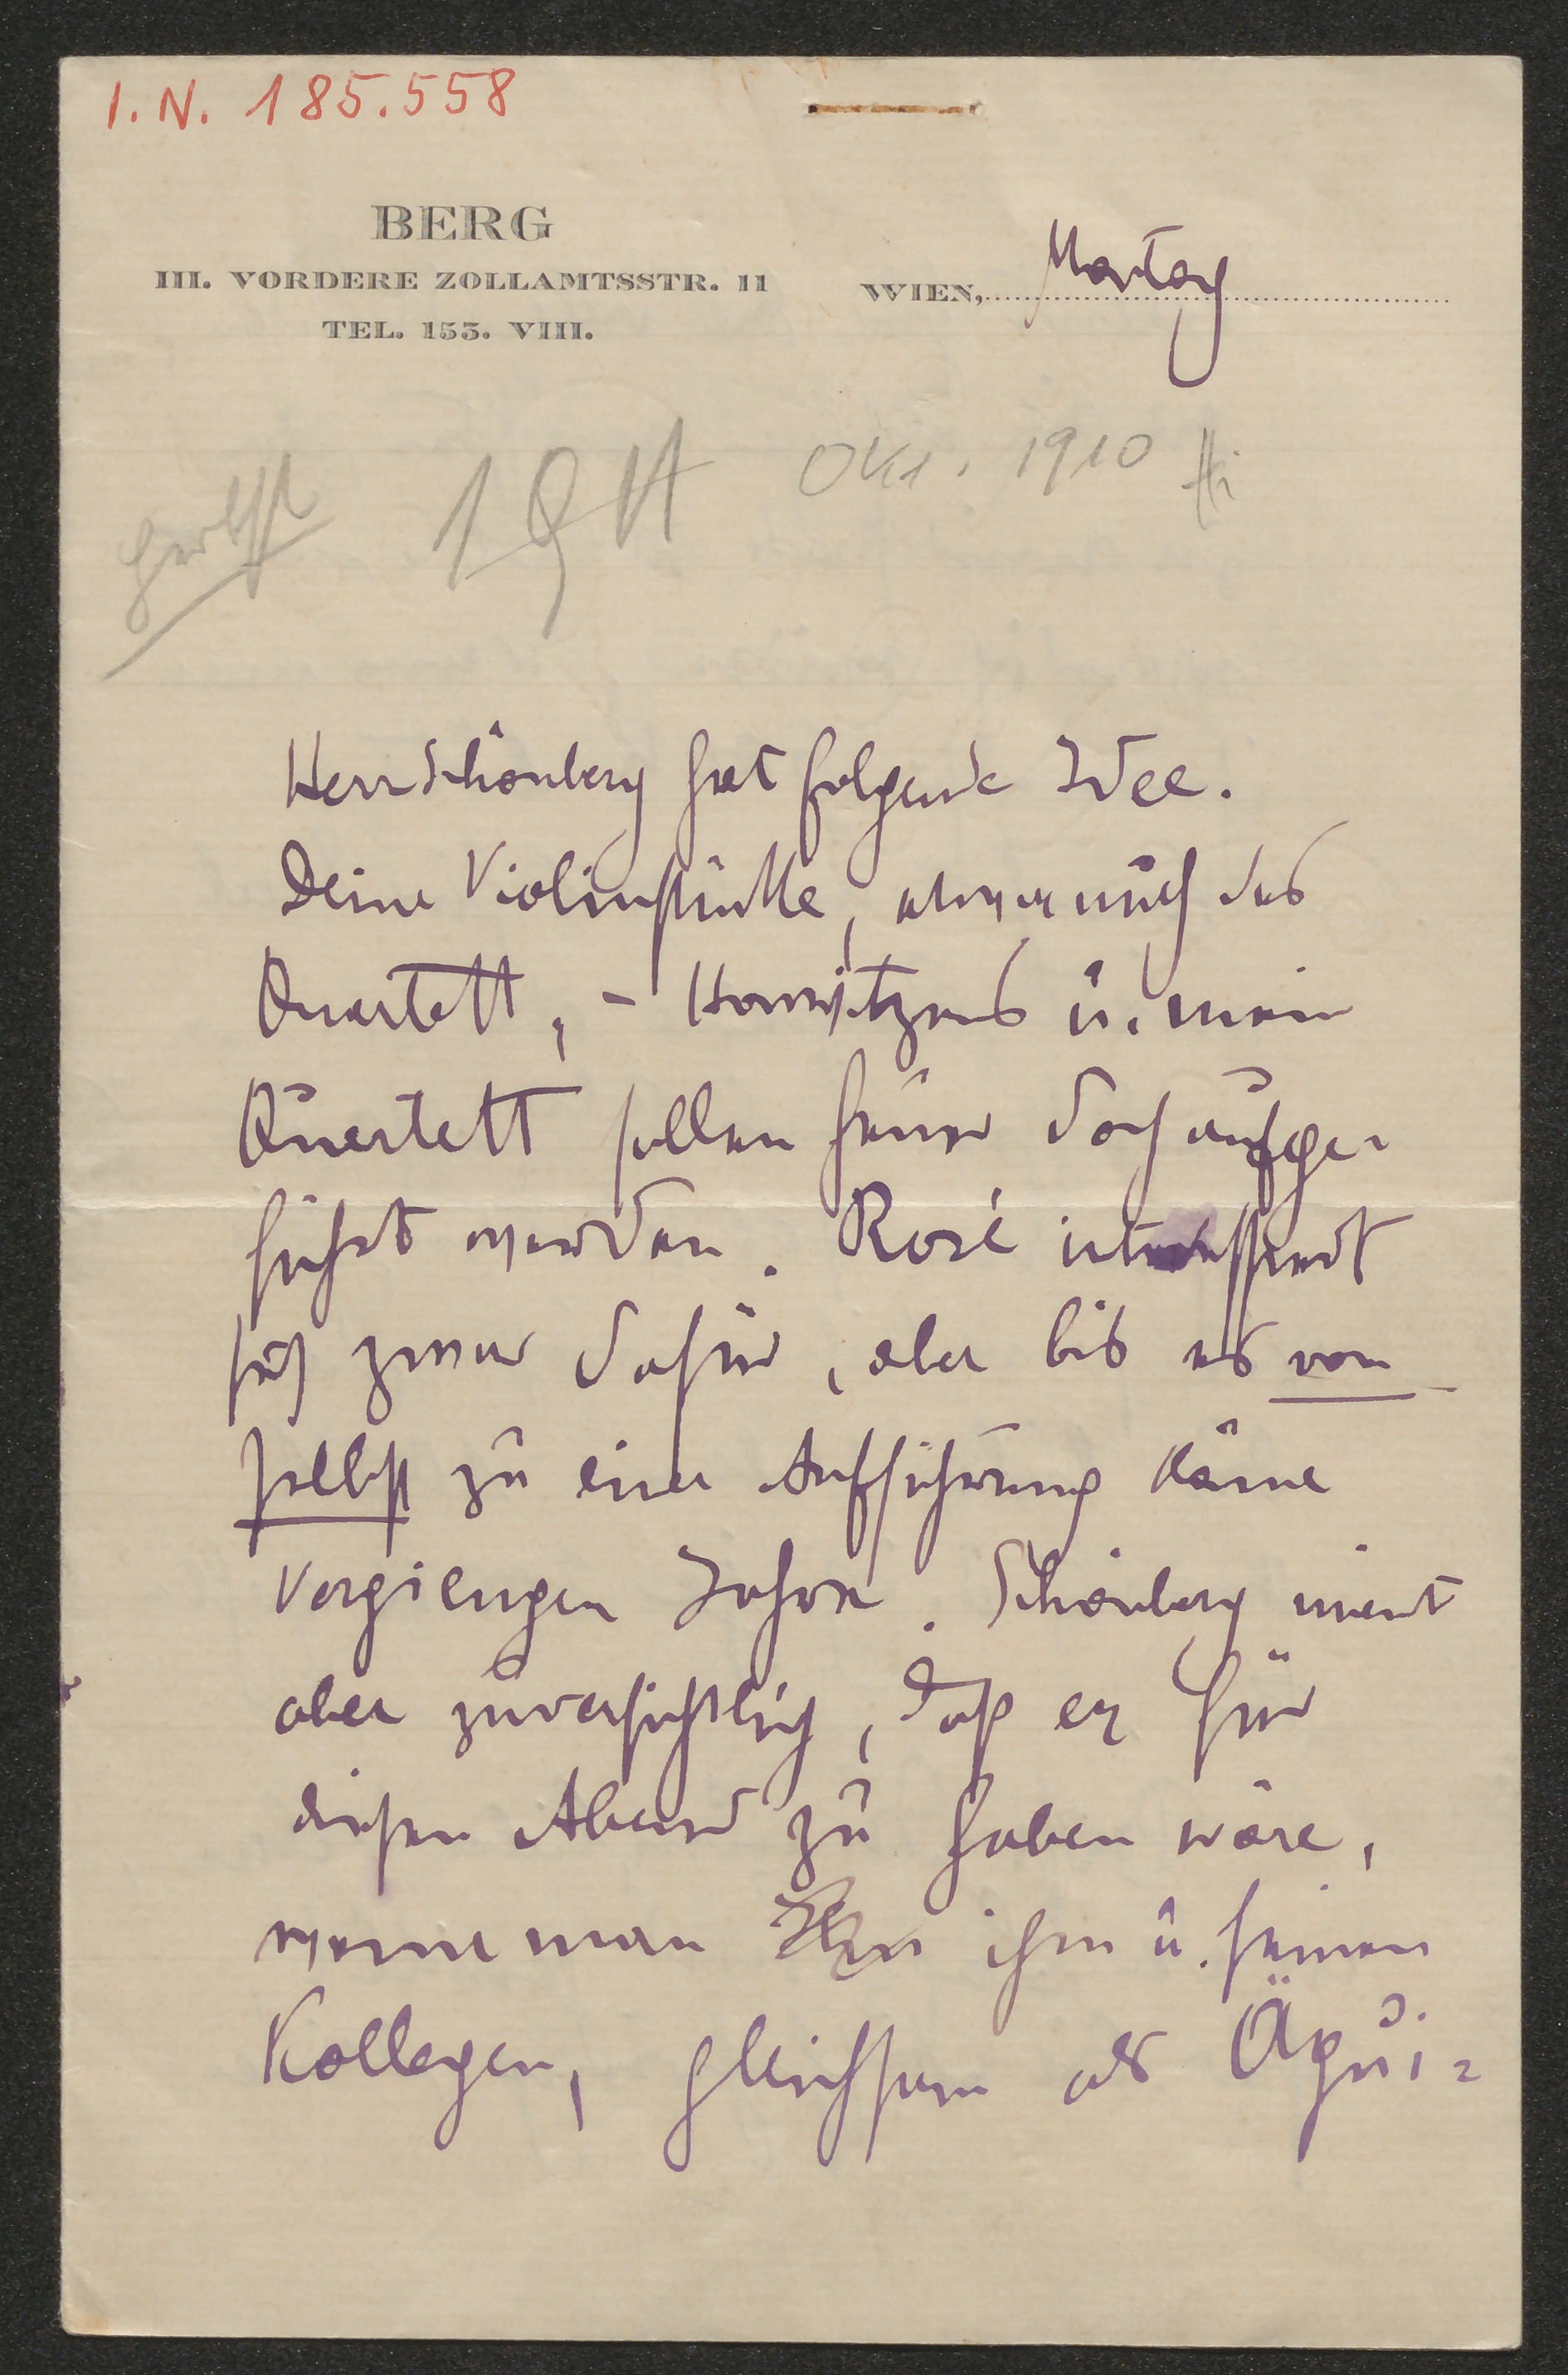 I.N. 185.558
BERG
III. VORDERE ZOLLAMTSSTR. 11
TEL. 153. VIII.
WIEN, Montag
Herbst 1911 Okt. 1910
Herr Schönberg hat folgende Idee.
Deine Violinstücke, etwa auch das
Quartett, – Horwitzens u. mein
Quartett sollen heuer doch aufge-
führt werden. Rosé interessiert
sich zwar dafür, aber bis es von
selbst zu einer Aufführung käme
vergiengen Jahre. Schönberg meint
aber zuversichtlich, daß er für
diesen Abend zu haben wäre,
wenn man ihm u. seinen
Kollegen, gleichsam als Äqui-